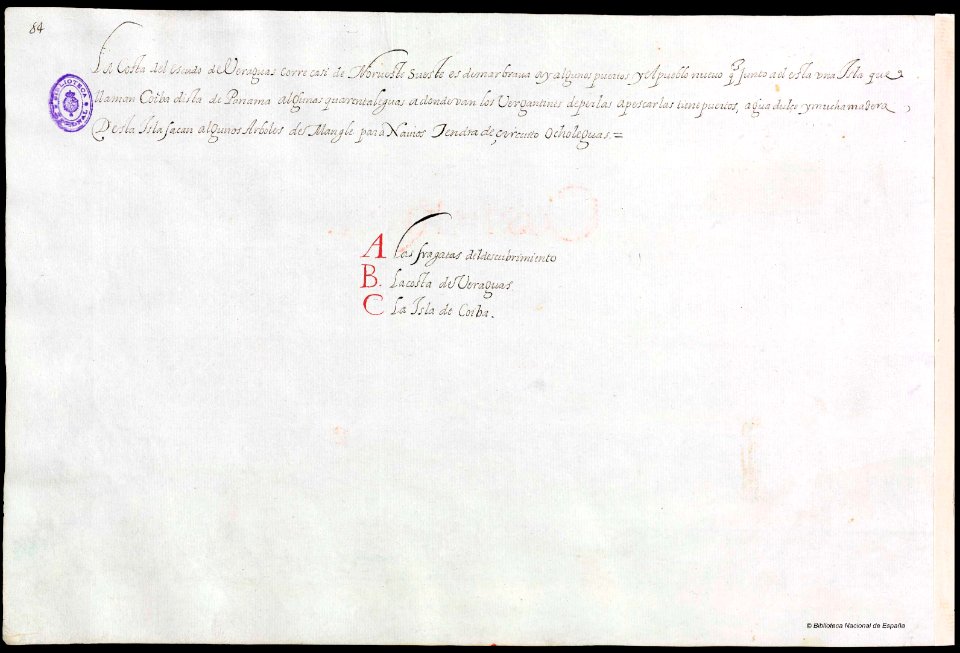 84
La Costa del escudo de Veraguas corre casi de Norueste Sueste es de mar braua ay algunos puertos y el pueblo nueuo junto a el esta vna Isla que
llaman Coiba dista de Panama algunas quarenta leguas a donde van los Vergantines de perlas a pescarlas tiene puertos, agua dulce y mucha madera,
De esta Isla sacan algunos Arboles de Mangle para Nauios Tendra de circuito ocho leguas.=
A Las fragatas del descubrimiento
B. La costa de Veraguas
C La Isla de Coiba.
BIBLIOTECA
© Biblioteca Nacional de España